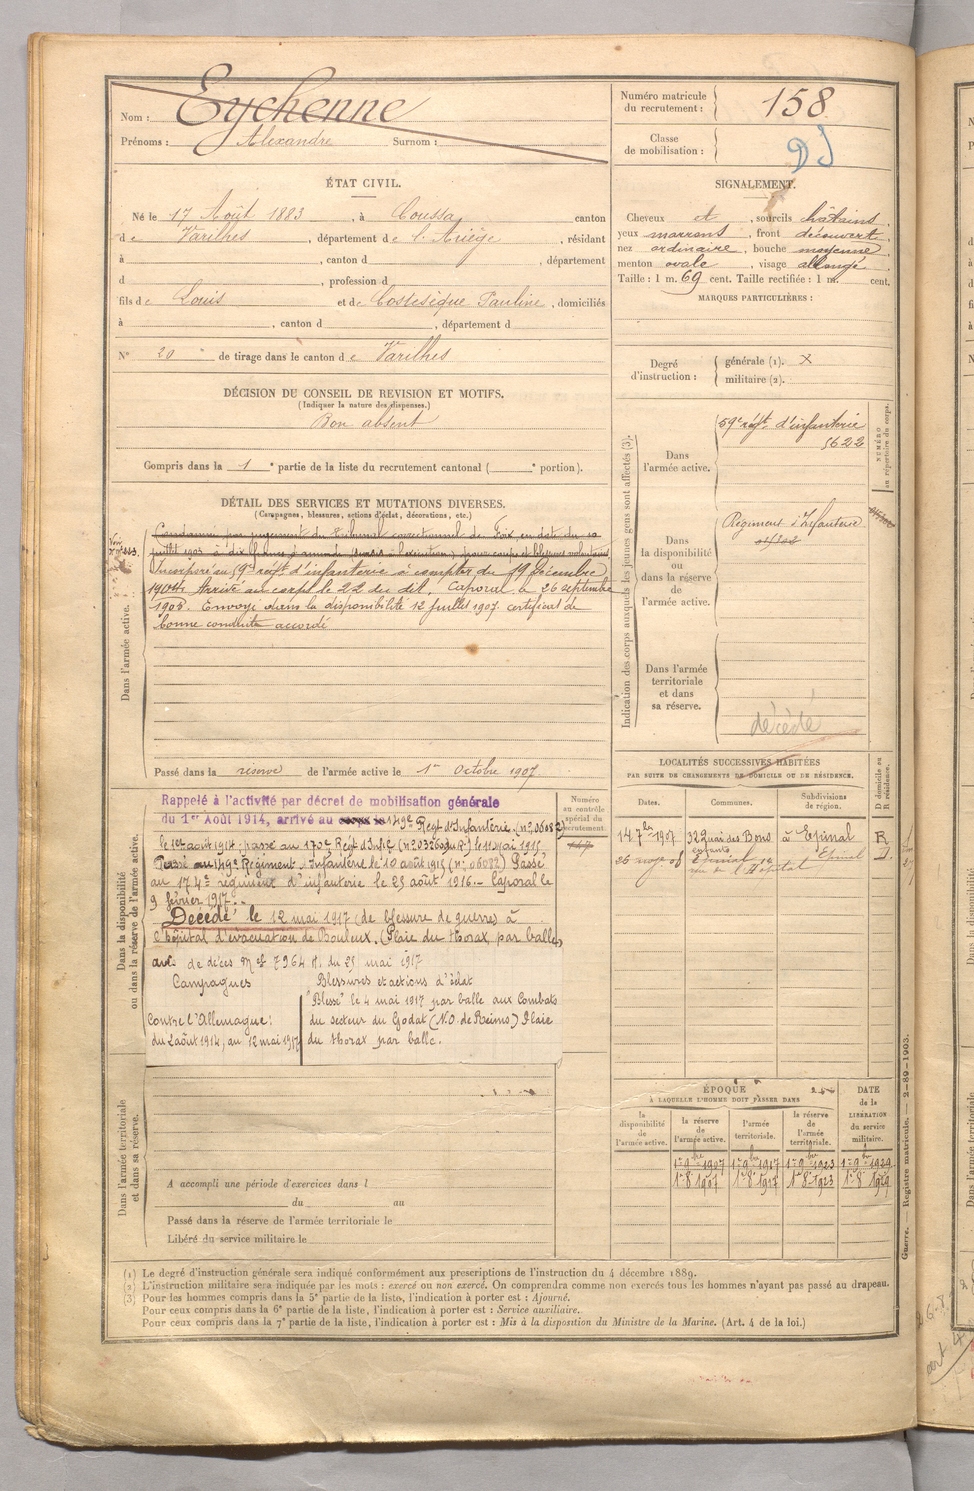 Nom : Eychenne
Prénoms : Alexandre Surnom :
Numéro matricule du recrutement : 158
Classe de mobilisation :
ÉTAT CIVIL.
Né le 17 Août 1883, à Coussa, canton
de Varilhes, département de l'Ariège, résidant
à , canton d , département
d , profession d
fils de Louis et de Costesèque Pauline, domiciliés
à , canton d , département d
N° 20 de tirage dans le canton de Varilhes
SIGNALEMENT.
Cheveux et , sourcils châtains
yeux marrons, front découvert,
nez ordinaire, bouche moyenne,
menton ovale, visage allongé.
Taille : 1 m. 69 cent. Taille rectifiée : 1 m. cent.
MARQUES PARTICULIÈRES :
Degré d'instruction : générale (1). X
militaire (2).
DÉCISION DU CONSEIL DE REVISION ET MOTIFS.
(Indiquer la nature des dispenses.)
Bon absent
Compris dans la 1e partie de la liste du recrutement cantonal ( e portion).
DÉTAIL DES SERVICES ET MUTATIONS DIVERSES.
(Campagnes, blessures, actions d'éclat, décorations, etc.)
Dans l'armée active.
Condamné par jugement du Tribunal correctionnel de Foix en date du 10
juillet 1903 à dix francs d'amende (sursis à l'exécution) pour coups et blessures volontaires
Incorporé au 59e régt d'infanterie à compter du 19 Décembre
1904. Arrivé au corps le 22 du dit. Caporal le 26 septembre
1905. Envoyé dans la disponibilité 12 Juillet 1907 certificat de
bonne conduite accordé
Passé dans la réserve de l'armée active le 1er Octobre 1907
Indication des corps auxquels les jeunes gens sont affectés (3).
NUMÉRO au répertoire du corps.
Dans l'armée active.
59e régt. d'infanterie
5622
Dans la disponibilité ou dans la réserve de l'armée active.
Régiment d'Infanterie
Dans l'armée territoriale et dans sa réserve.
décédé
Dans la disponibilité ou dans la réserve de l'armée active.
Numéro au contrôle spécial du recrutement
Rappelé à l'activité par décret de mobilisation générale
du 1er Août 1914, arrivé au 149e Régt d'Infanterie (n° 06082)
le 1er août 1914, passé au 170e Régt d'Infie le 11 mai 1915
Passé au 149e Régiment d'Infanterie le 10 août 1915 (n° 06082) Passé
au 174e régiment d'infanterie le 25 août 1916.- Caporal le
9 février 1917.-
Décédé, le 12 mai 1917 (de blessure de guerre) à
l'hôpital d'évacuation de Bouleux. (Plaie du thorax par balle)
avis de décès Mel 7964 H. du 25 mai 1917
Campagnes
Contre l'Allemagne :
du 2 août 1914, au 12 mai 1917
Blessures et actions d'éclat
"Blessé" le 4 mai 1917 par balle aux Combats
du secteur du Godat (N.O. de Reims) Plaie
du thorax par balle.
LOCALITÉS SUCCESSIVES HABITÉES
PAR SUITE DE CHANGEMENTS DE DOMICILE OU DE RÉSIDENCE.
Dates. Communes. Subdivisions de région. D domicile ou R résidence.
14 7bre 1907 32 Quai des Bons enfants à Epinal R
Epinal Epinal D.
rue de l'Hôpital
ÉPOQUE
À LAQUELLE L'HOMME DOIT PASSER DANS
la disponibilité de l'armée active. la réserve de l'armée active. l'armée territoriale. la réserve de l'armée territoriale. DATE de la LIBÉRATION du service militaire.
1er 9bre 1907 1er 9bre 1917 1er 9bre 1923 1er 9bre 1929
1er 8bre 1907 1er 8bre 1917 1er 8bre 1923 1er 8bre 1929
Dans l'armée territoriale et dans sa réserve.
A accompli une période d'exercices dans l
du au
Passé dans la réserve de l'armée territoriale le
Libéré du service militaire le
Guerre. — Registre matricule. — 2-89-1903.
(1) Le degré d'instruction générale sera indiqué conformément aux prescriptions de l'instruction du 4 décembre 1889.
(2) L'instruction militaire sera indiquée par les mots : exercé ou non exercé. On comprendra comme non exercés tous les hommes n'ayant pas passé au drapeau.
(3) Pour les hommes compris dans la 5e partie de la liste, l'indication à porter est : Ajourné.
Pour ceux compris dans la 6e partie de la liste, l'indication à porter est : Service auxiliaire.
Pour ceux compris dans la 7e partie de la liste, l'indication à porter est : Mis à la disposition du Ministre de la Marine. (Art. 4 de la loi.)